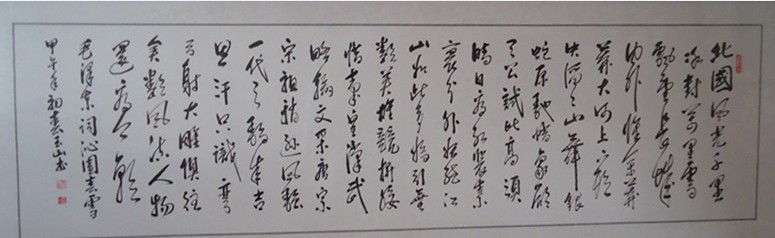 北國風光千里
冰封萬里雪
飄望長城
内外惟餘莽
莽大河上下頓
失滔滔山舞銀
蛇原馳蠟象欲
天公試比高須
晴日看紅裝素
裹分外妖嬈江
山如此多嬌引無
數英雄競折腰
惜秦皇漢武
略輸文采唐宗
宋祖稍遜風騷
一代天驕成吉
思汗只識彎
弓射大雕俱往
矣數風流人物
還看今朝
毛澤東詞沁園春雪
甲午年初春玉山書